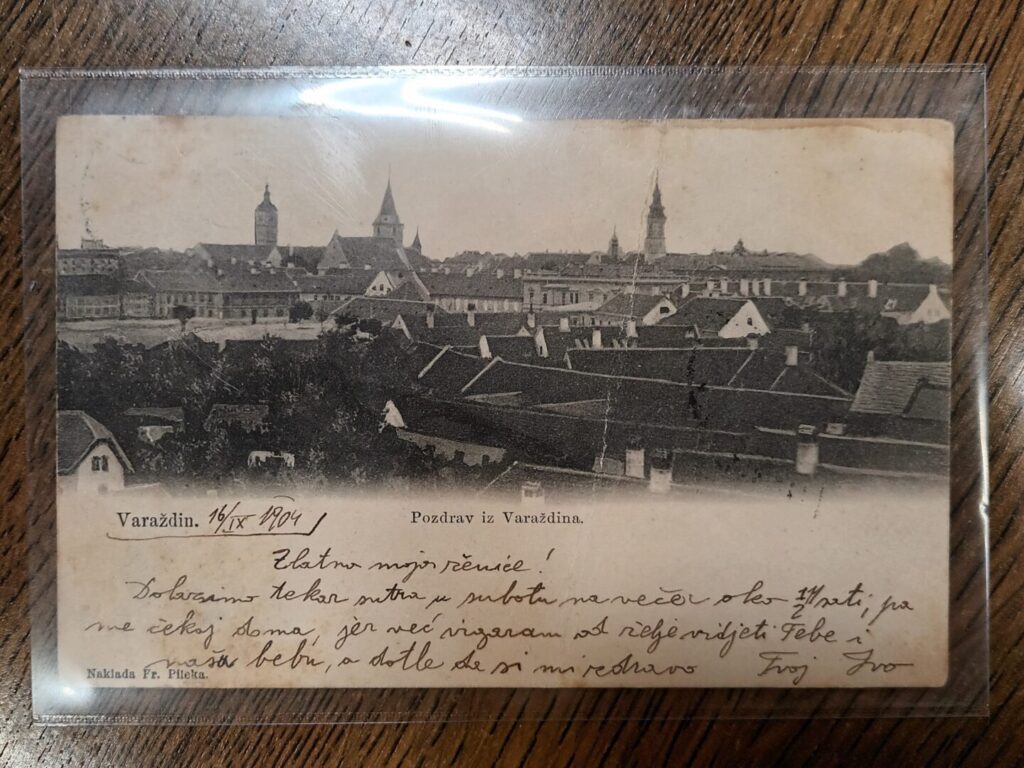 Varaždin. 16/IX 1904
Pozdrav iz Varaždina.
Zlatna moja ženice!
Dolazimo tekar sutra u subotu na večer oko sati, pa
me čekaj doma, jer već izgaram od želje vidjeti Tebe i
našu bebu, a dotle da si mi zdravo Tvoj Ivo
Naklada Fr. Pileka.